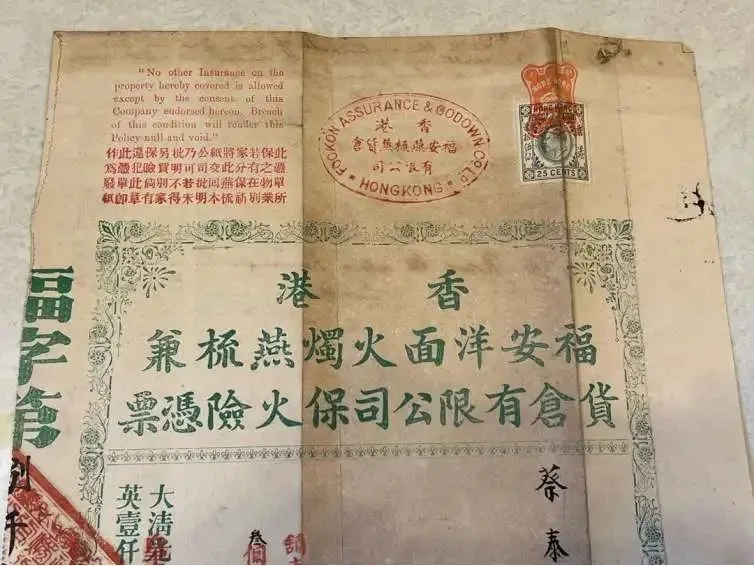 "No other Insurance on the
property hereby covered is allowed
except by the consent of this
Company endorsed hereon. Breach
of this condition will render this
Policy null and void."
單所
保之物業
若有在別
家分保
將此燕梳
紙交回本
公司批明
乃可若未
批明不得
另買別家
保險倘有
犯此章
此憑單即
作為廢紙
FOOKON ASSURANCE & GODOWN CO LD
香港
福安燕梳兼貨倉
有限公司
HONGKONG
25 CENTS
香港
福安洋面火燭燕梳兼
貨倉有限公司保火險憑票
福字第
蔡泰
大清
英壹仟